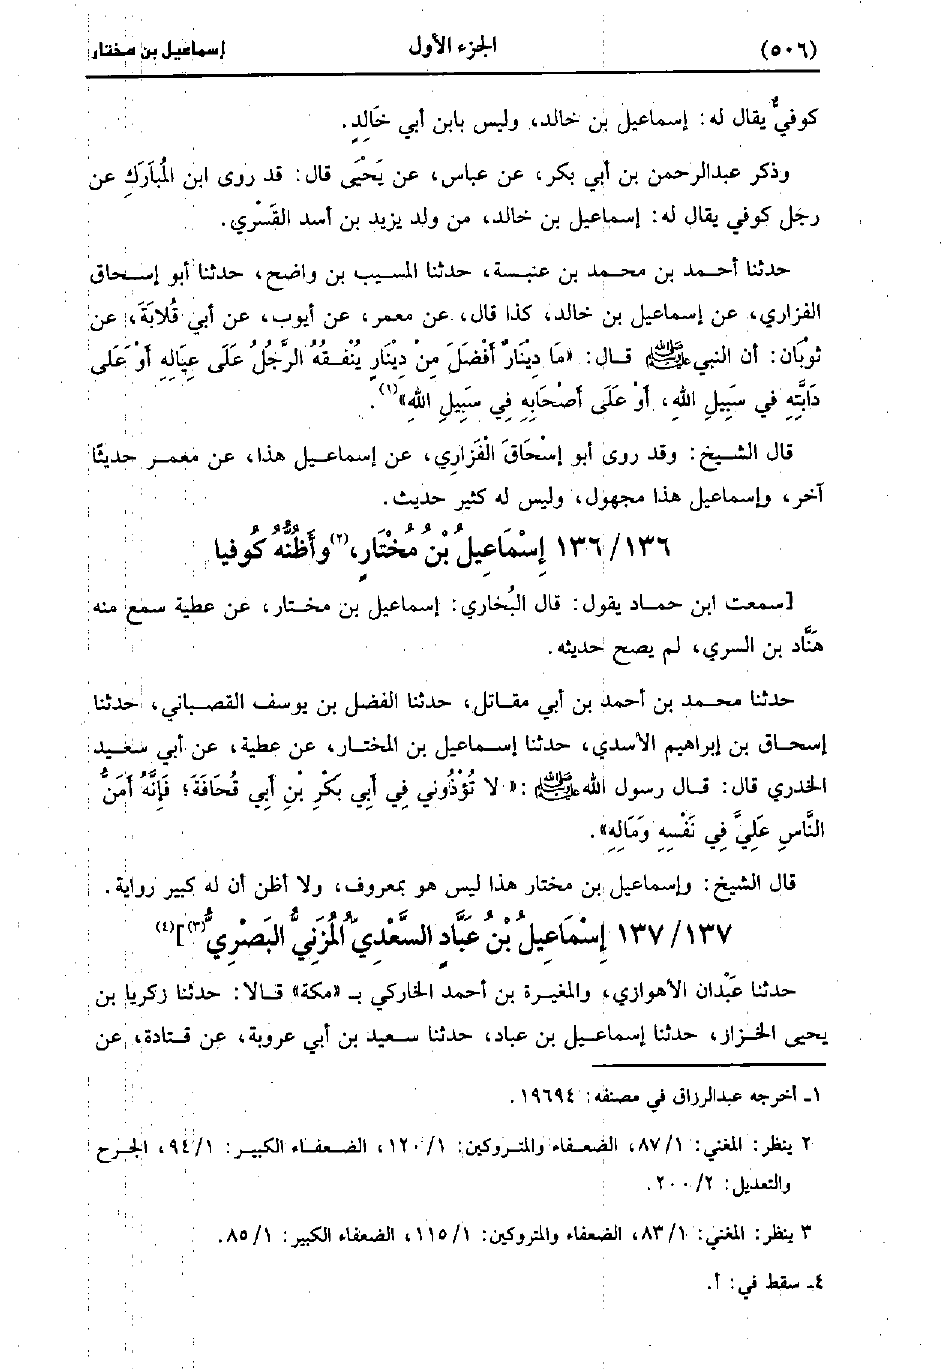 (٥٠٦) الجزء الأول إسماعيل بن مختار
كوفيٌّ يقال له: إسماعيل بن خالد، وليس بابن أبي خَالِدٍ.
وذكر عبدالرحمن بن أبي بكر، عن عباس، عن يَحْيَى قال: قد روى ابن المُبَارَكِ عن
رجل كوفي يقال له: إسماعيل بن خالد، من ولد يزيد بن أسد القَسْري.
حدثنا أحمد بن محمد بن عنبسة، حدثنا المسيب بن واضح، حدثنا أبو إسحاق
الفزاري، عن إسماعيل بن خالد، كذا قال، عن معمر، عن أيوب، عن أبي قُلابَةَ، عن
ثوبَان: أن النبي ﷺ قال: «مَا دِينَارٌ أَفْضَلَ مِنْ دِينَارٍ يُنْفِقُهُ الرَّجُلُ عَلَى عِيَالِهِ أَوْ عَلَى
دَابَّتِهِ في سَبِيلِ اللهِ، أَوْ عَلَى أَصْحَابِهِ فِي سَبِيلِ اللهِ»(١).
قال الشيخ: وقد روى أبو إسْحَاقَ الْفَزَارِي، عن إسماعيل هذا، عن معمر حديثًا
آخر، وإسماعيل هذا مجهول، وليس له كثير حديث.
١٣٦/١٣٦ إِسْمَاعِيلُ بْنُ مُخْتَارٍ،(٢) وأَظُنُّهُ كُوفيا
[سمعت ابن حماد يقول: قال البُخاري: إسماعيل بن مختار، عن عطية سمع منه
هَنَّاد بن السري، لم يصح حديثه.
حدثنا محمد بن أحمد بن أبي مقاتل، حدثنا الفضل بن يوسف القصباني، حدثنا
إسحاق بن إبراهيم الأسدي، حدثنا إسماعيل بن المختار، عن عطية، عن أبي سعيد
الخدري قال: قال رسول الله ﷺ: «لا تُؤْذُوني فِي أَبِي بَكْرِ بْنِ أَبِي قُحَافَةَ؛ فَإِنَّهُ أَمَنُّ
النَّاسِ عَلِيَّ فِي نَفْسِهِ وَمَالِهِ».
قال الشيخ: وإسماعيل بن مختار هذا ليس هو بمعروف، ولا أظن أن له كبير رواية.
١٣٧/١٣٧ إِسْمَاعِيلُ بْنُ عَبَّادٍ السَّعْدِيّ المُزَنيُّ البَصْرِيُّ(٣)](٤)
حدثنا عَبْدان الأهوازي، والمغيرة بن أحمد الخاركي بـ «مكة» قالا: حدثنا زكريا بن
يحيى الخزاز، حدثنا إسماعيل بن عباد، حدثنا سعيد بن أبي عروبة، عن قتادة، عن
١ـ أخرجه عبدالرزاق في مصنفه: ١٩٦٩٤.
٢ ينظر: المغني: ٨٧/١، الضعفاء والمتروكين: ١٢٠/١، الضعفاء الكبير: ٩٤/١، الجرح
والتعديل: ٢٠٠/٢.
٣ ينظر: المغني: ٨٣/١، الضعفاء والمتروكين: ١١٥/١، الضعفاء الكبير: ٨٥/١.
٤ـ سقط في: أ.